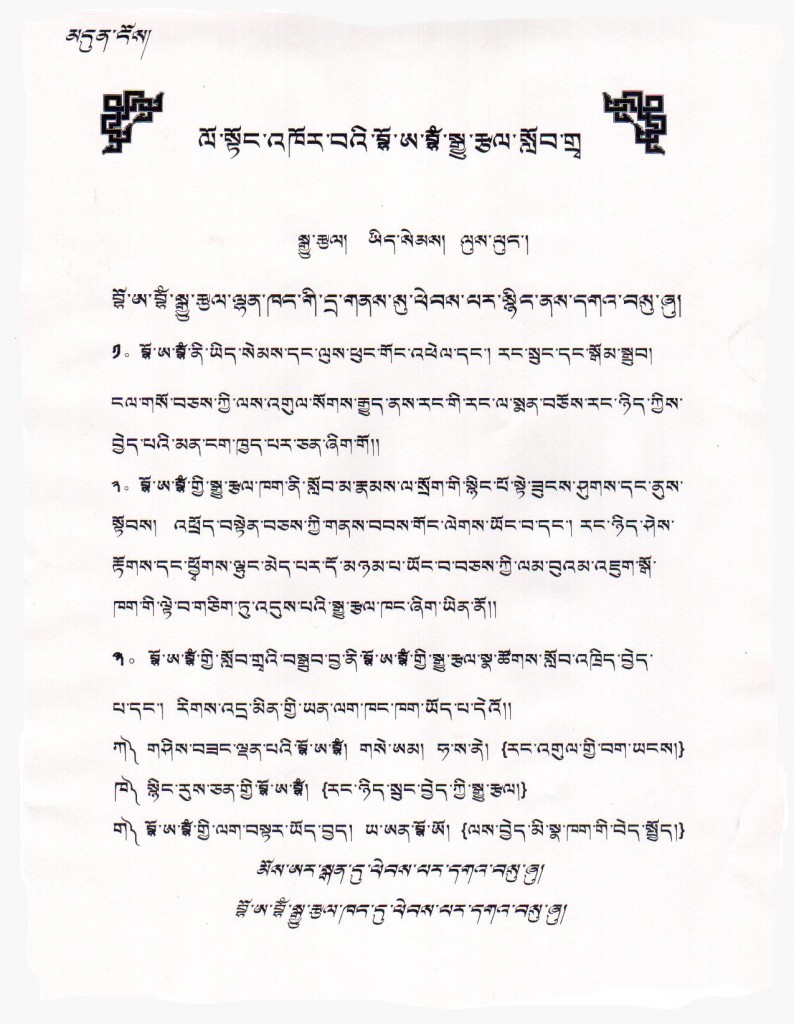 མདུན་ངོས།
ལོ་སྟོང་འཁོར་བའི་བྷོ་ཨ་བྷཾ་སྒྱུ་རྩལ་སློབ་གྲྭ
སྒྱུ་རྩལ། ཡིད་སེམས། ལུས་ཕུང་།
བྷོ་ཨ་བྷཾ་སྒྱུ་རྩལ་ལྷན་ཁང་གི་དྲ་གནས་སུ་ཕེབས་པར་སྙིང་ནས་དགའ་བསུ་ཞུ།
༡༠ བྷོ་ཨ་བྷཾ་ནི་ཡིད་སེམས་དང་ལུས་ཕུང་གོང་འཕེལ་དང་། རང་སྲུང་དང་སྒོམ་སྒྲུབ།
ངལ་གསོ་བཅས་ཀྱི་ལས་འགུལ་སོགས་རྒྱུད་ནས་རང་གི་རང་ལ་སྨན་བཅོས་རང་ཉིད་ཀྱིས་
བྱེད་པའི་མན་ངག་ཁྱད་པར་ཅན་ཞིག་གོ།།
༢༠ བྷོ་ཨ་བྷཾ་གྱི་སྒྱུ་རྩལ་ཁག་ནི་སློབ་མ་རྣམས་ལ་སྲོག་གི་སྙིང་པོ་སྟེ་ཟུངས་ཤུགས་དང་ནུས་
སྟོབས། འཕྲོད་བསྟེན་བཅས་ཀྱི་གནས་བབས་གོང་ལེགས་ཡོང་བ་དང་། རང་ཉིད་ཤེས་
རྟོགས་དང་ཕྱོགས་ལྷུང་མེད་པར་དོ་མཉམ་པ་ཡོང་བ་བཅས་ཀྱི་ལམ་བུའམ་འཇུག་སྒོ་
ཁག་གི་ལྟེ་བ་གཅིག་ཏུ་འདུས་པའི་སྒྱུ་རྩལ་ཁང་ཞིག་ཡིན་ནོ།།
༣༠ བྷོ་ཨ་བྷཾ་གྱི་སློབ་གྲྭའི་བསླབ་བྱ་ནི་བྷོ་ཨ་བྷཾ་གྱི་སྒྱུ་རྩལ་སྣ་ཚོགས་སློབ་འཁྲིད་བྱེད་
པ་དང་། རིགས་འདྲ་མིན་གྱི་ཡན་ལག་ཁང་ཁག་ཡོད་པ་དེའོ།།
ཀ༽ གཤིས་བཟང་ལྡན་པའི་བྷོ་ཨ་བྷཾ། གསེ་ཨམ། ཧ་ས་ནེ། {རང་འགུལ་གྱི་བག་ཡངས།}
ཁ༽ སྙིང་རུས་ཅན་གྱི་བྷོ་ཨ་བྷཾ། {རང་ཉིད་སྲུང་བྱེད་ཀྱི་སྒྱུ་རྩལ།}
ག༽ བྷོ་ཨ་བྷཾ་གྱི་ལག་བསྟར་ཡོད་བྱད། ཡ་ཨན་བྷོ་ཨོ། {ལས་བྱེད་མི་སྣ་ཁག་གི་བེད་སྤྱོད།}
མོས་ཨར་སྨན་དུ་ཕེབས་པར་དགའ་བསུ་ཞུ།
བྷོ་ཨ་བྷཾ་སྒྱུ་རྩལ་ཁང་དུ་ཕེབས་པར་དགའ་བསུ་ཞུ།